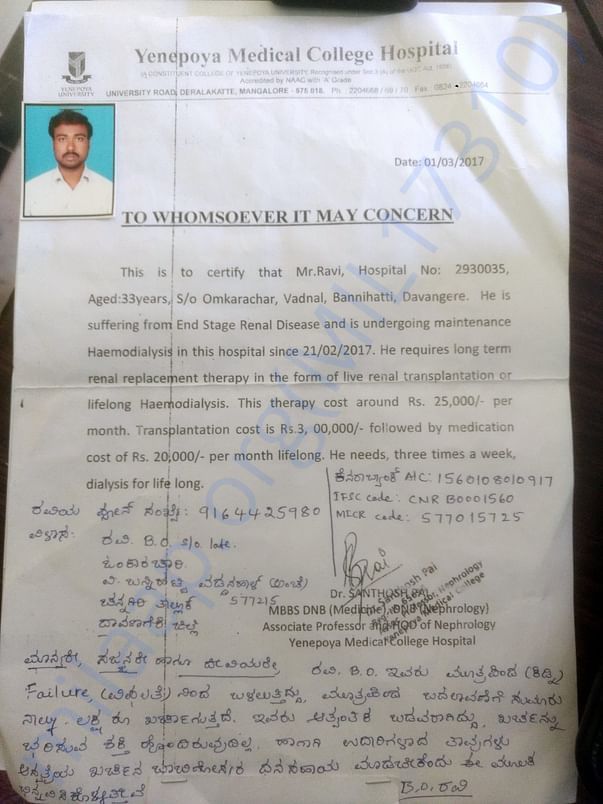 Yenepoya Medical College Hospital
(A CONSTITUENT COLLEGE OF YENEPOYA UNIVERSITY, Recognised under Sec 3 (A) of the UGC Act, 1956)
Accredited by NAAC with 'A' Grade
YENEPOYA
UNIVERSITY
UNIVERSITY ROAD, DERALAKATTE, MANGALORE - 575 018. Ph : 2204668 / 69 / 70 Fax : 0824 - 2204664
Date: 01/03/2017
TO WHOMSOEVER IT MAY CONCERN
This is to certify that Mr.Ravi, Hospital No: 2930035,
Aged:33years, S/o Omkarachar, Vadnal, Bannihatti, Davangere. He is
suffering from End Stage Renal Disease and is undergoing maintenance
Haemodialysis in this hospital since 21/02/2017. He requires long term
renal replacement therapy in the form of live renal transplantation or
lifelong Haemodialysis. This therapy cost around Rs. 25,000/- per
month. Transplantation cost is Rs.3, 00,000/- followed by medication
cost of Rs. 20,000/- per month lifelong. He needs, three times a week,
dialysis for life long.
ಕೆನರಾಬ್ಯಾಂಕ್ A/C: 1560108010917
IFSC code: CNRB0001560
MICR code: 577015725
ರವಿಯ ಫೋನ್ ಸಂಖ್ಯೆ: 9164425980
ವಿಳಾಸ: ರವಿ. B.O. s/o. late.
ಓಂಕಾರಚಾರಿ
ವಡ್ನಹಾಳ್ (ಅಂಚೆ)
ಚನ್ನಗಿರಿ ತಾಲ್ಲೂಕ್ 577215
ದಾವಣಗೆರೆ ಜಿಲ್ಲೆ
Dr. SANTHOSH PAI
MBBS DNB (Medicine), DNB (Nephrology)
Associate Professor and HOD of Nephrology
Yenepoya Medical College Hospital
ಮಾನ್ಯರೇ, ಸಜ್ಜನರೇ ಹಾಗೂ ರವಿ. B.O. ಇವರು ಮೂತ್ರಪಿಂಡ (ಕಿಡ್ನಿ)
Failure, (ವಿಫಲತೆ) ನಿಂದ ಬಳಲುತ್ತಿದ್ದು, ಮೂತ್ರಪಿಂಡ ಬದಲಾವಣೆಗೆ ಸುಮಾರು
ನಾಲ್ಕು ಲಕ್ಷ ರೂ ಖರ್ಚಾಗುತ್ತದೆ. ಇವರು ಅತ್ಯಂತ ಬಡವರಾಗಿದ್ದು, ಖರ್ಚನ್ನು
ಭರಿಸುವ ಶಕ್ತಿ ಹೊಂದಿರುವುದಿಲ್ಲ. ಹಾಗಾಗಿ ಉದಾರಿಗಳಾದ ತಾವುಗಳು
ಆಸ್ಪತ್ರೆಯ ಖರ್ಚಿನ ಧನಸಹಾಯ ಮಾಡಬೇಕೆಂದು ಈ ಮೂಲಕ
B.O. ರವಿ
milaap.org(MIL17310)